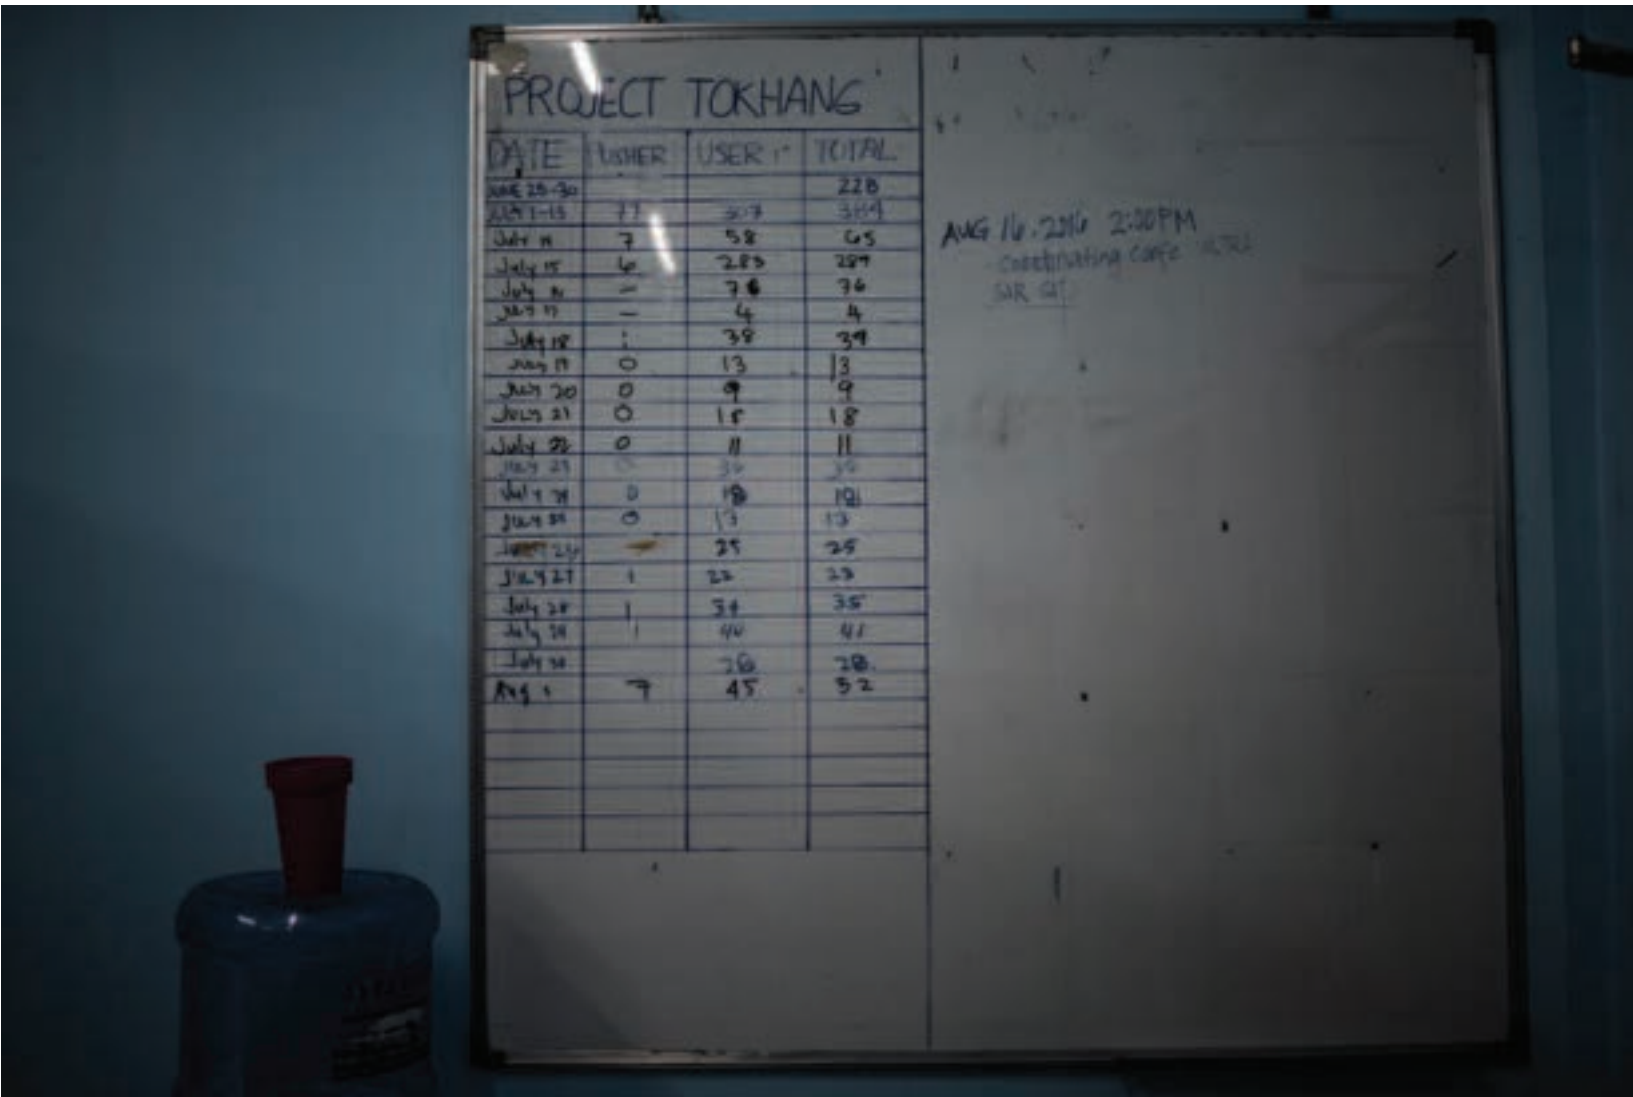 PROJECT TOKHANG
DATE USHER USER TOTAL
JUNE 25-30 228
JULY 1-13 77 307 384
July 14 7 58 65
July 15 6 283 289
July 16 - 76 76
JULY 17 - 4 4
July 18 38 39
July 19 0 13 13
July 20 0 9 9
JULY 21 0 18 18
July 22 0 11 11
JULY 23
July 24 0 18 18
JULY 25 0 13 13
25 25
JULY 27 1 22 23
July 28 1 34 35
July 29 1 40 41
July 30 28 28.
Aug 1 7 45 52
AUG 16.2016 2:00PM
Coordinating Confe